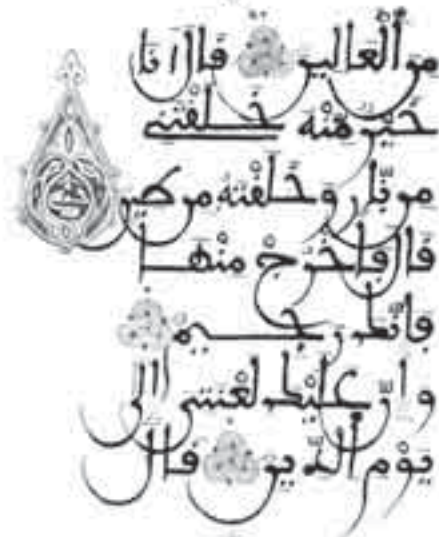 من ٱلعالين قال انا
خَيْر مِّنْهُ خَلَقْتَنِے
من نّار وَخَلَقْتَهُ من طين
قال فَاخْرُجْ مِنْهَا
فإنّك رجيم
وإنّ عليك لَعْنَتِي إلى
يَوْمِ ٱلدِّينِ قال